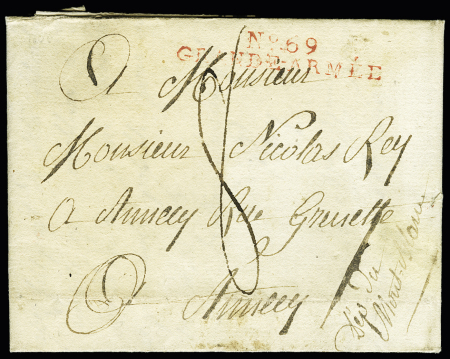 No. 69
GRANDE ARMÉE
A Monsieur
Monsieur Nicolas Rey
a Annecy Rue Grenette
A Annecy
8
Dep. du
Mont-Blanc